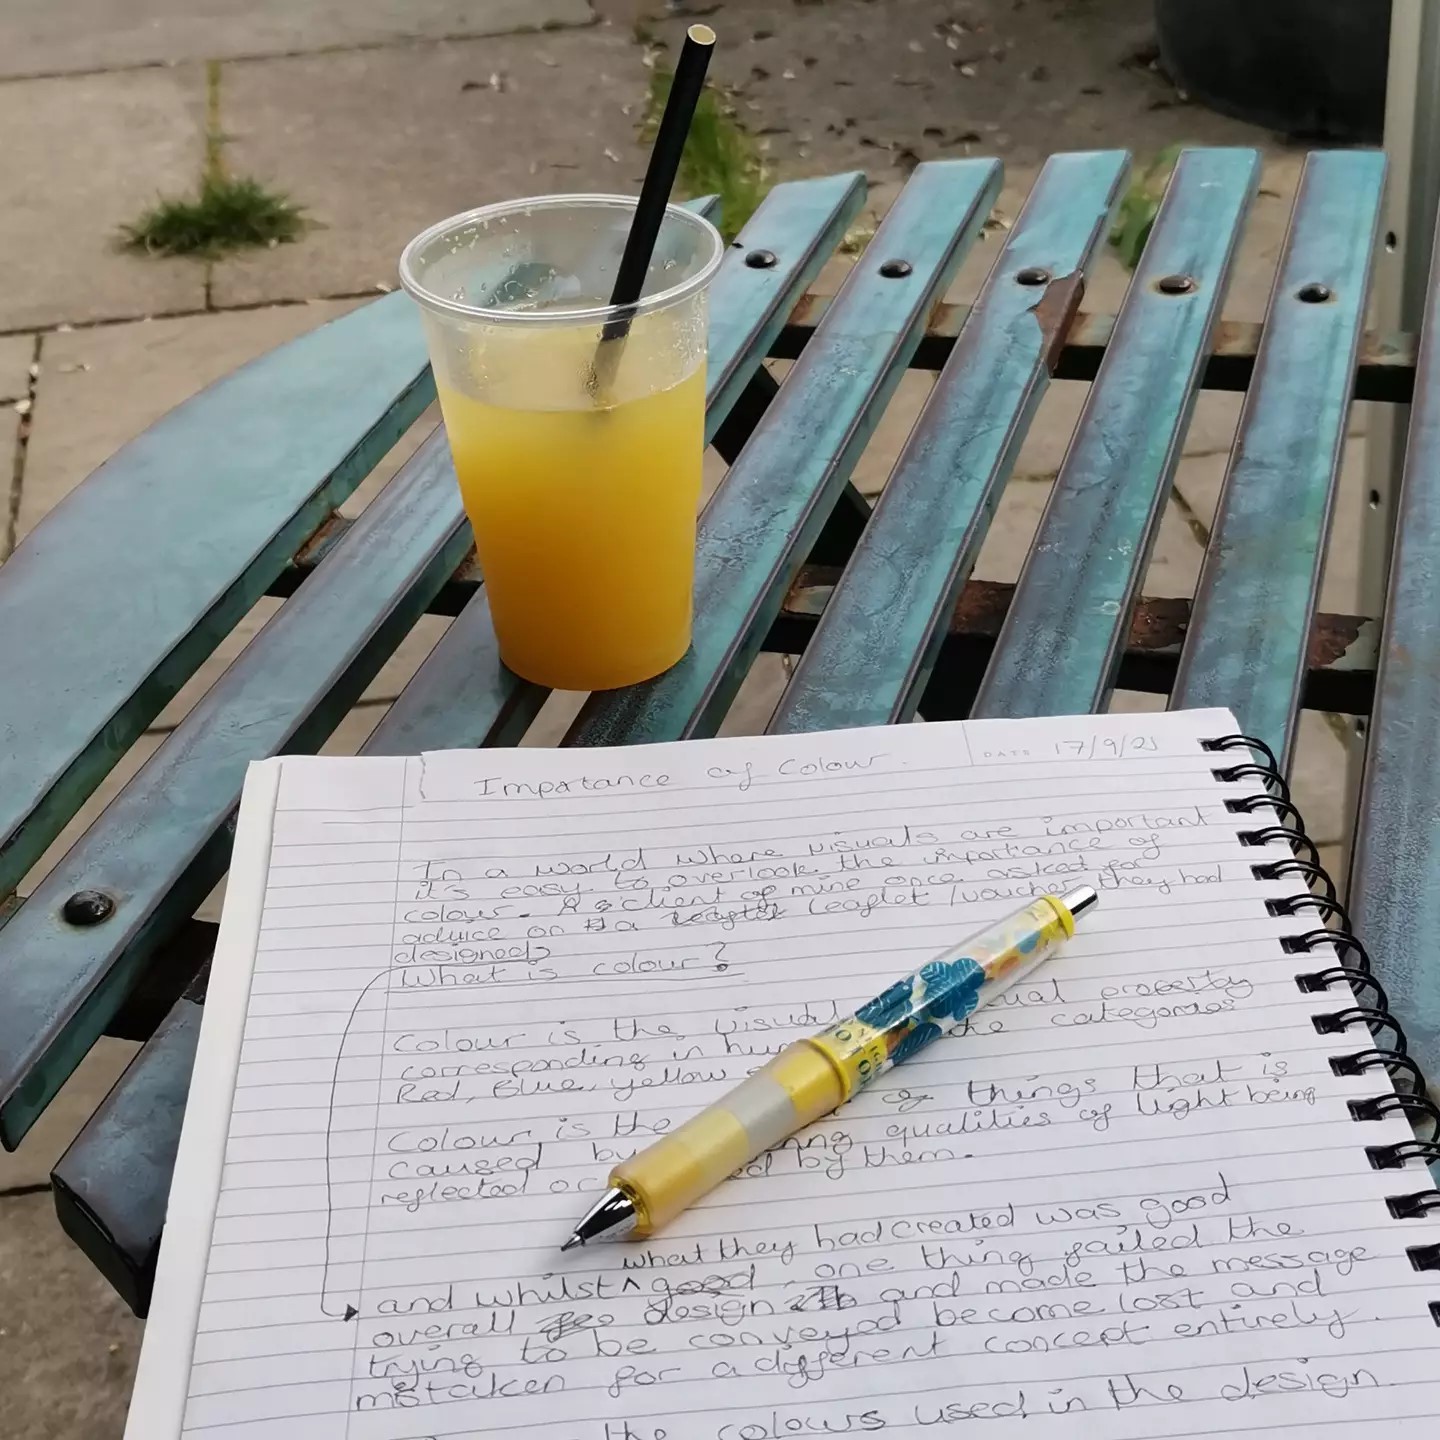 Importance of Colour.
DATE 17/9/21
In a world where visuals are important
it's easy to overlook the importance of
colour. A client of mine once asked for
advice on a leaflet/voucher they had
designed
What is colour?
Colour is the visual ual property
corresponding in hum the categories
Red, Blue, yellow
Colour, is the of things that is
caused by qualities of light being
reflected or ed by them.
what they had created was good
and whilst ^ good, one thing failed the
overall design and made the message
trying to be conveyed become lost and
mistaken for a different concept entirely.
the colours used in the design.